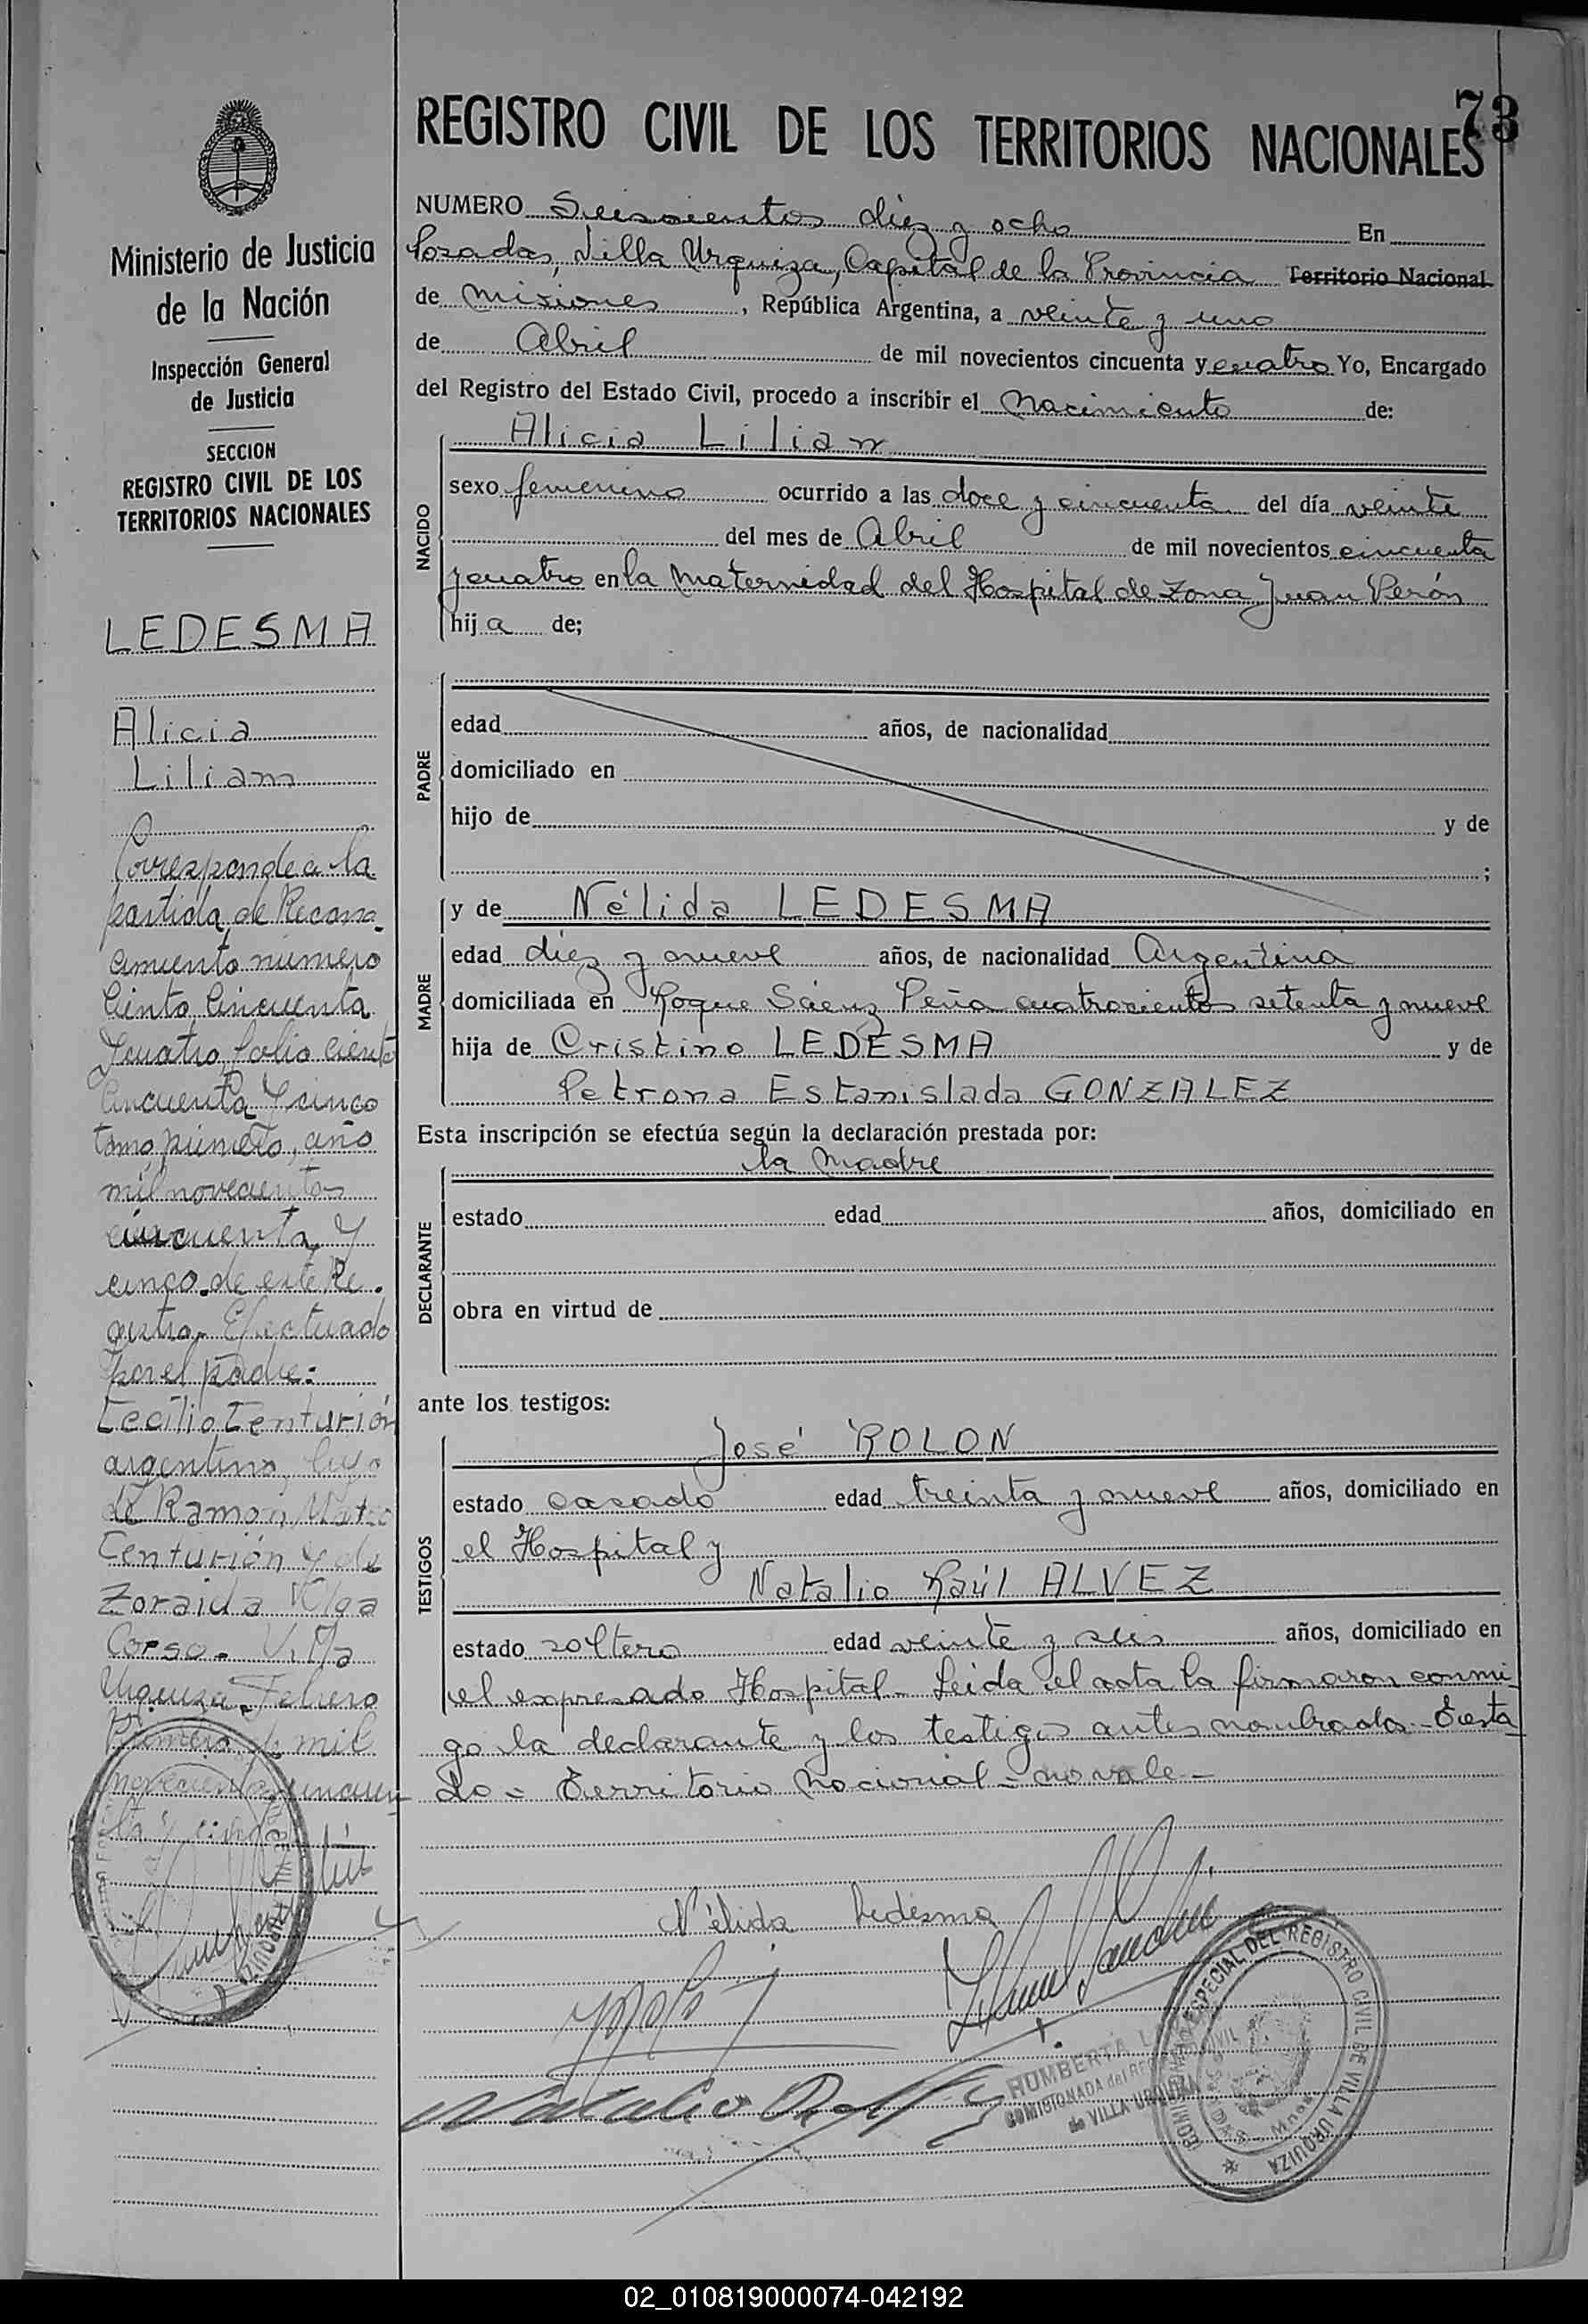 73
REGISTRO CIVIL DE LOS TERRITORIOS NACIONALES
Ministerio de Justicia
de la Nación
Inspección General
de Justicia
SECCION
REGISTRO CIVIL DE LOS
TERRITORIOS NACIONALES
LEDESMA
Alicia
Lilian
Corresponde a la
partida de Recono-
cimiento número
Ciento Cincuenta
Y cuatro, folio ciento
Cincuenta Y cinco
tomo primero, año
mil novecientos
cincuenta Y
cinco de este Re-
gistro. Efectuado
por el padre:
Cecilio Centurión
argentino, hijo
de Ramón Mateo
Centurión y de
Zoraida Olga
Corso. Villa
Urquiza. Febrero
Primero de mil
novecientos cincuen
ta y cinco
NUMERO Seiscientos diez y ocho En
Posadas, Villa Urquiza, Capital de la Provincia Territorio Nacional
de Misiones, República Argentina, a veinte y uno
de Abril de mil novecientos cincuenta y cuatro Yo, Encargado
del Registro del Estado Civil, procedo a inscribir el Nacimiento de:
NACIDO
Alicia Lilian
sexo femenino ocurrido a las doce y cincuenta del día veinte
del mes de Abril de mil novecientos cincuenta
y cuatro en la Maternidad del Hospital de Zona Juan Perón
hija de;
PADRE
edad años, de nacionalidad
domiciliado en
hijo de y de
;
MADRE
y de Nélida LEDESMA
edad diez y nueve años, de nacionalidad Argentina
domiciliada en Roque Sáenz Peña cuatrocientos setenta y nueve
hija de Cristino LEDESMA y de
Petrona Estanislada GONZALEZ
Esta inscripción se efectúa según la declaración prestada por:
DECLARANTE
la Madre
estado edad años, domiciliado en
obra en virtud de
ante los testigos:
TESTIGOS
José ROLON
estado casado edad treinta y nueve años, domiciliado en
el Hospital y
Natalio Raúl ALVEZ
estado soltero edad veinte y seis años, domiciliado en
el expresado Hospital - Leida el acta la firmaron conmi-
go la declarante y los testigos antes nombrados - Testa
do = Territorio Nacional = no vale -
Nélida Ledesma
HUMBERTA
COMISIONADA del
de VILLA URQUIZA
ESPECIAL DEL REGISTRO CIVIL DE VILLA URQUIZA
02_010819000074-042192